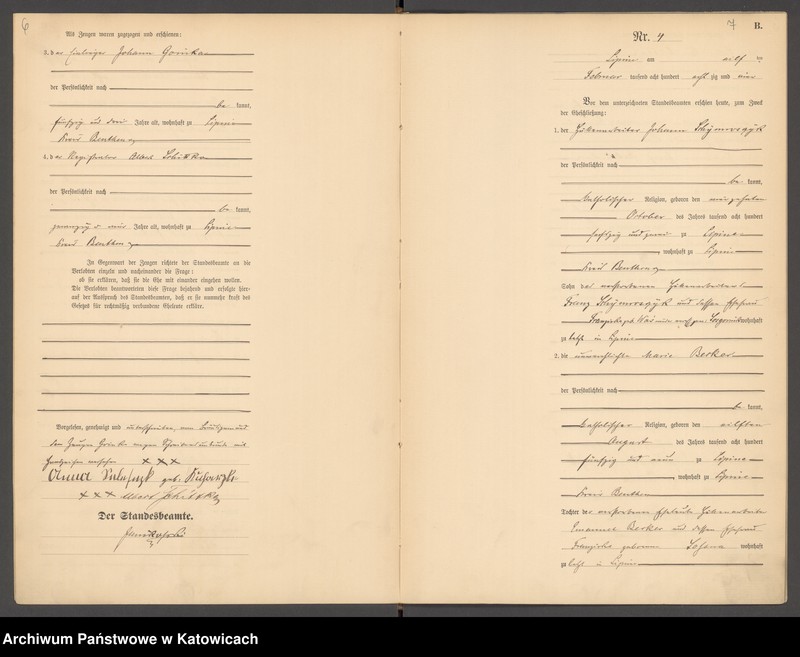 6
Mit Zeugen waren zugegen und erschienen:
3. der Johann
der Persönlichkeit nach
be kannt,
fünfzig und drei Jahre alt, wohnhaft zu Lipine
Kreis Beuthen
4. der Albert Schitzka
der Persönlichkeit nach
be kannt,
zwanzig Jahre alt, wohnhaft zu Lipine
Kreis Beuthen
In Gegenwart der Zeugen richtete der Standesbeamte an die
Verlobten einzeln und nacheinander die Frage:
ob sie erklären, daß sie die Ehe mit einander eingehen wollen.
Die Verlobten beantworteten diese Frage bejahend und erfolgte hier-
auf der Ausspruch des Standesbeamten, daß er sie nunmehr kraft des
Gesetzes für rechtmäßig verbundene Eheleute erkläre.
Vorgelesen, genehmigt und unterschrieben, vom Bräutigam und
dem Zeugen wegen Schreibensunkunde mit
Handzeichen versehen + + +
Anna geb.
+ + + Albert Schitzka
Der Standesbeamte.
7 B.
Nr. 4
Lipine am elf ten
Februar tausend acht hundert acht zig und vier
Vor dem unterzeichneten Standesbeamten erschien heute, zum Zweck
der Eheschließung:
1. der Hüttenarbeiter Johann
der Persönlichkeit nach
be kannt,
katholischer Religion, geboren den neunzehnten
October des Jahres tausend acht hundert
sechszig und zwei zu Lipine
, wohnhaft zu Lipine
Kreis Beuthen
Sohn des verstorbenen Hüttenarbeiters
Franz und dessen Ehefrau
Franziska geb. wohnhaft
zu letzt in Lipine
2. die unverehelichte Marie Becker
der Persönlichkeit nach
be kannt,
katholischer Religion, geboren den elften
August des Jahres tausend acht hundert
fünfzig und neun zu Lipine
, wohnhaft zu Lipine
Kreis Beuthen
Tochter der verstorbenen Eheleute Hüttenarbeiter
Emanuel Becker und dessen Ehefrau
Franziska geborene wohnhaft
zu letzt in Lipine
Archiwum Państwowe w Katowicach